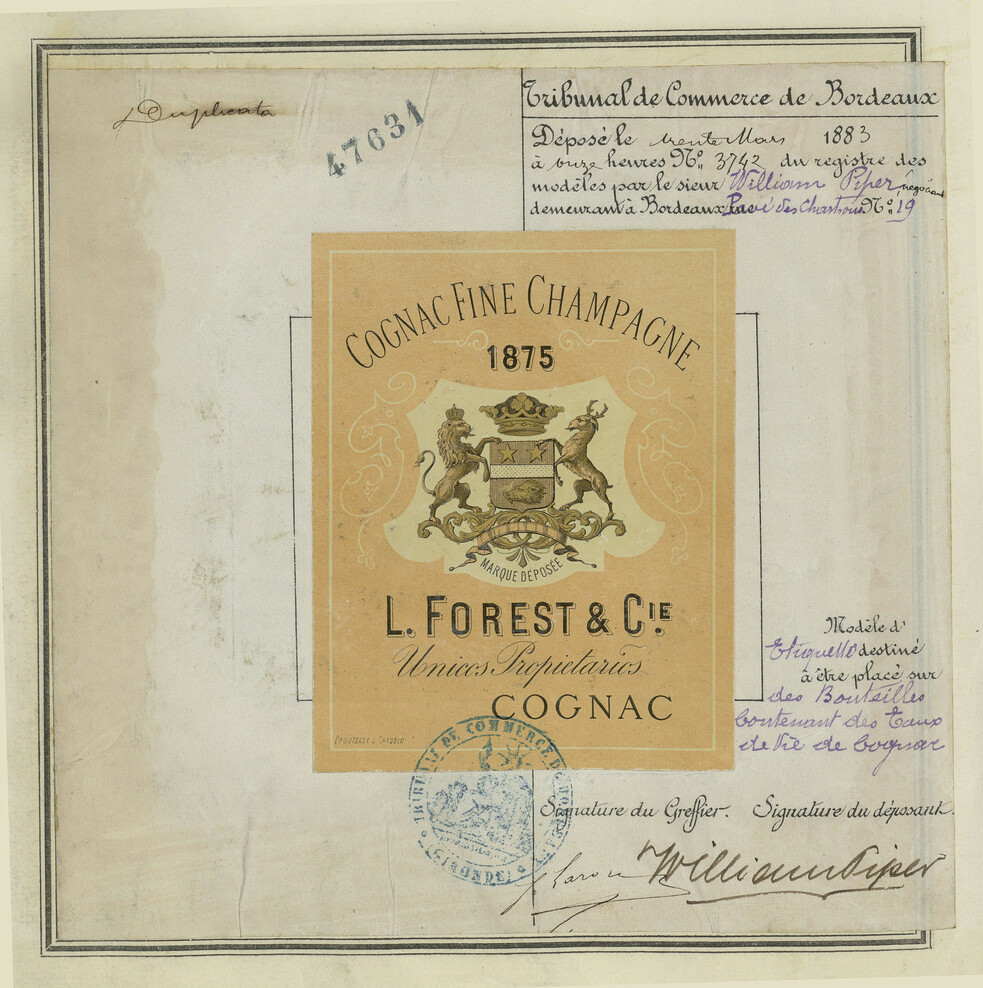 Duplicata
47631
Tribunal de Commerce de Bordeaux
Déposé le trente Mars 1883
à onze heures No. 3742 du registre des
modèles par le sieur William Piper, négociant
demeurant à Bordeaux Pavé des Chartrons No. 19
COGNAC FINE CHAMPAGNE
1875
MARQUE DÉPOSÉE
L. FOREST & CIE.
Unicos Propietarios
COGNAC
Modèle d'
Etiquette destiné
à être placé sur
des Bouteilles
Contenant des Eaux
de Vie de Cognac
TRIBUNAL DE COMMERCE DE BORDEAUX
(GIRONDE)
Signature du Greffier. Signature du déposant.
William Piper